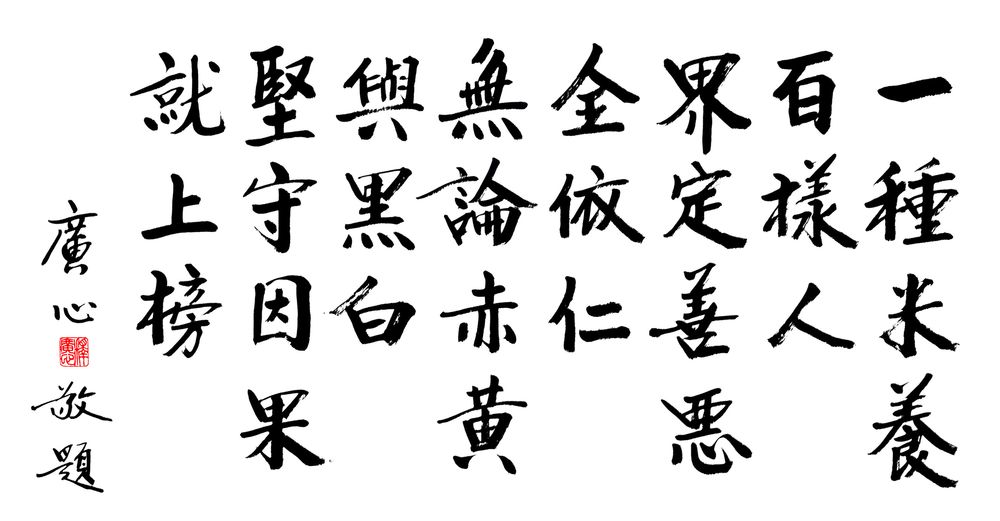 一種米養
百樣人
界定善悪
全依仁
無論赤黃
與黑白
堅守因果
就上榜
廣心敬題